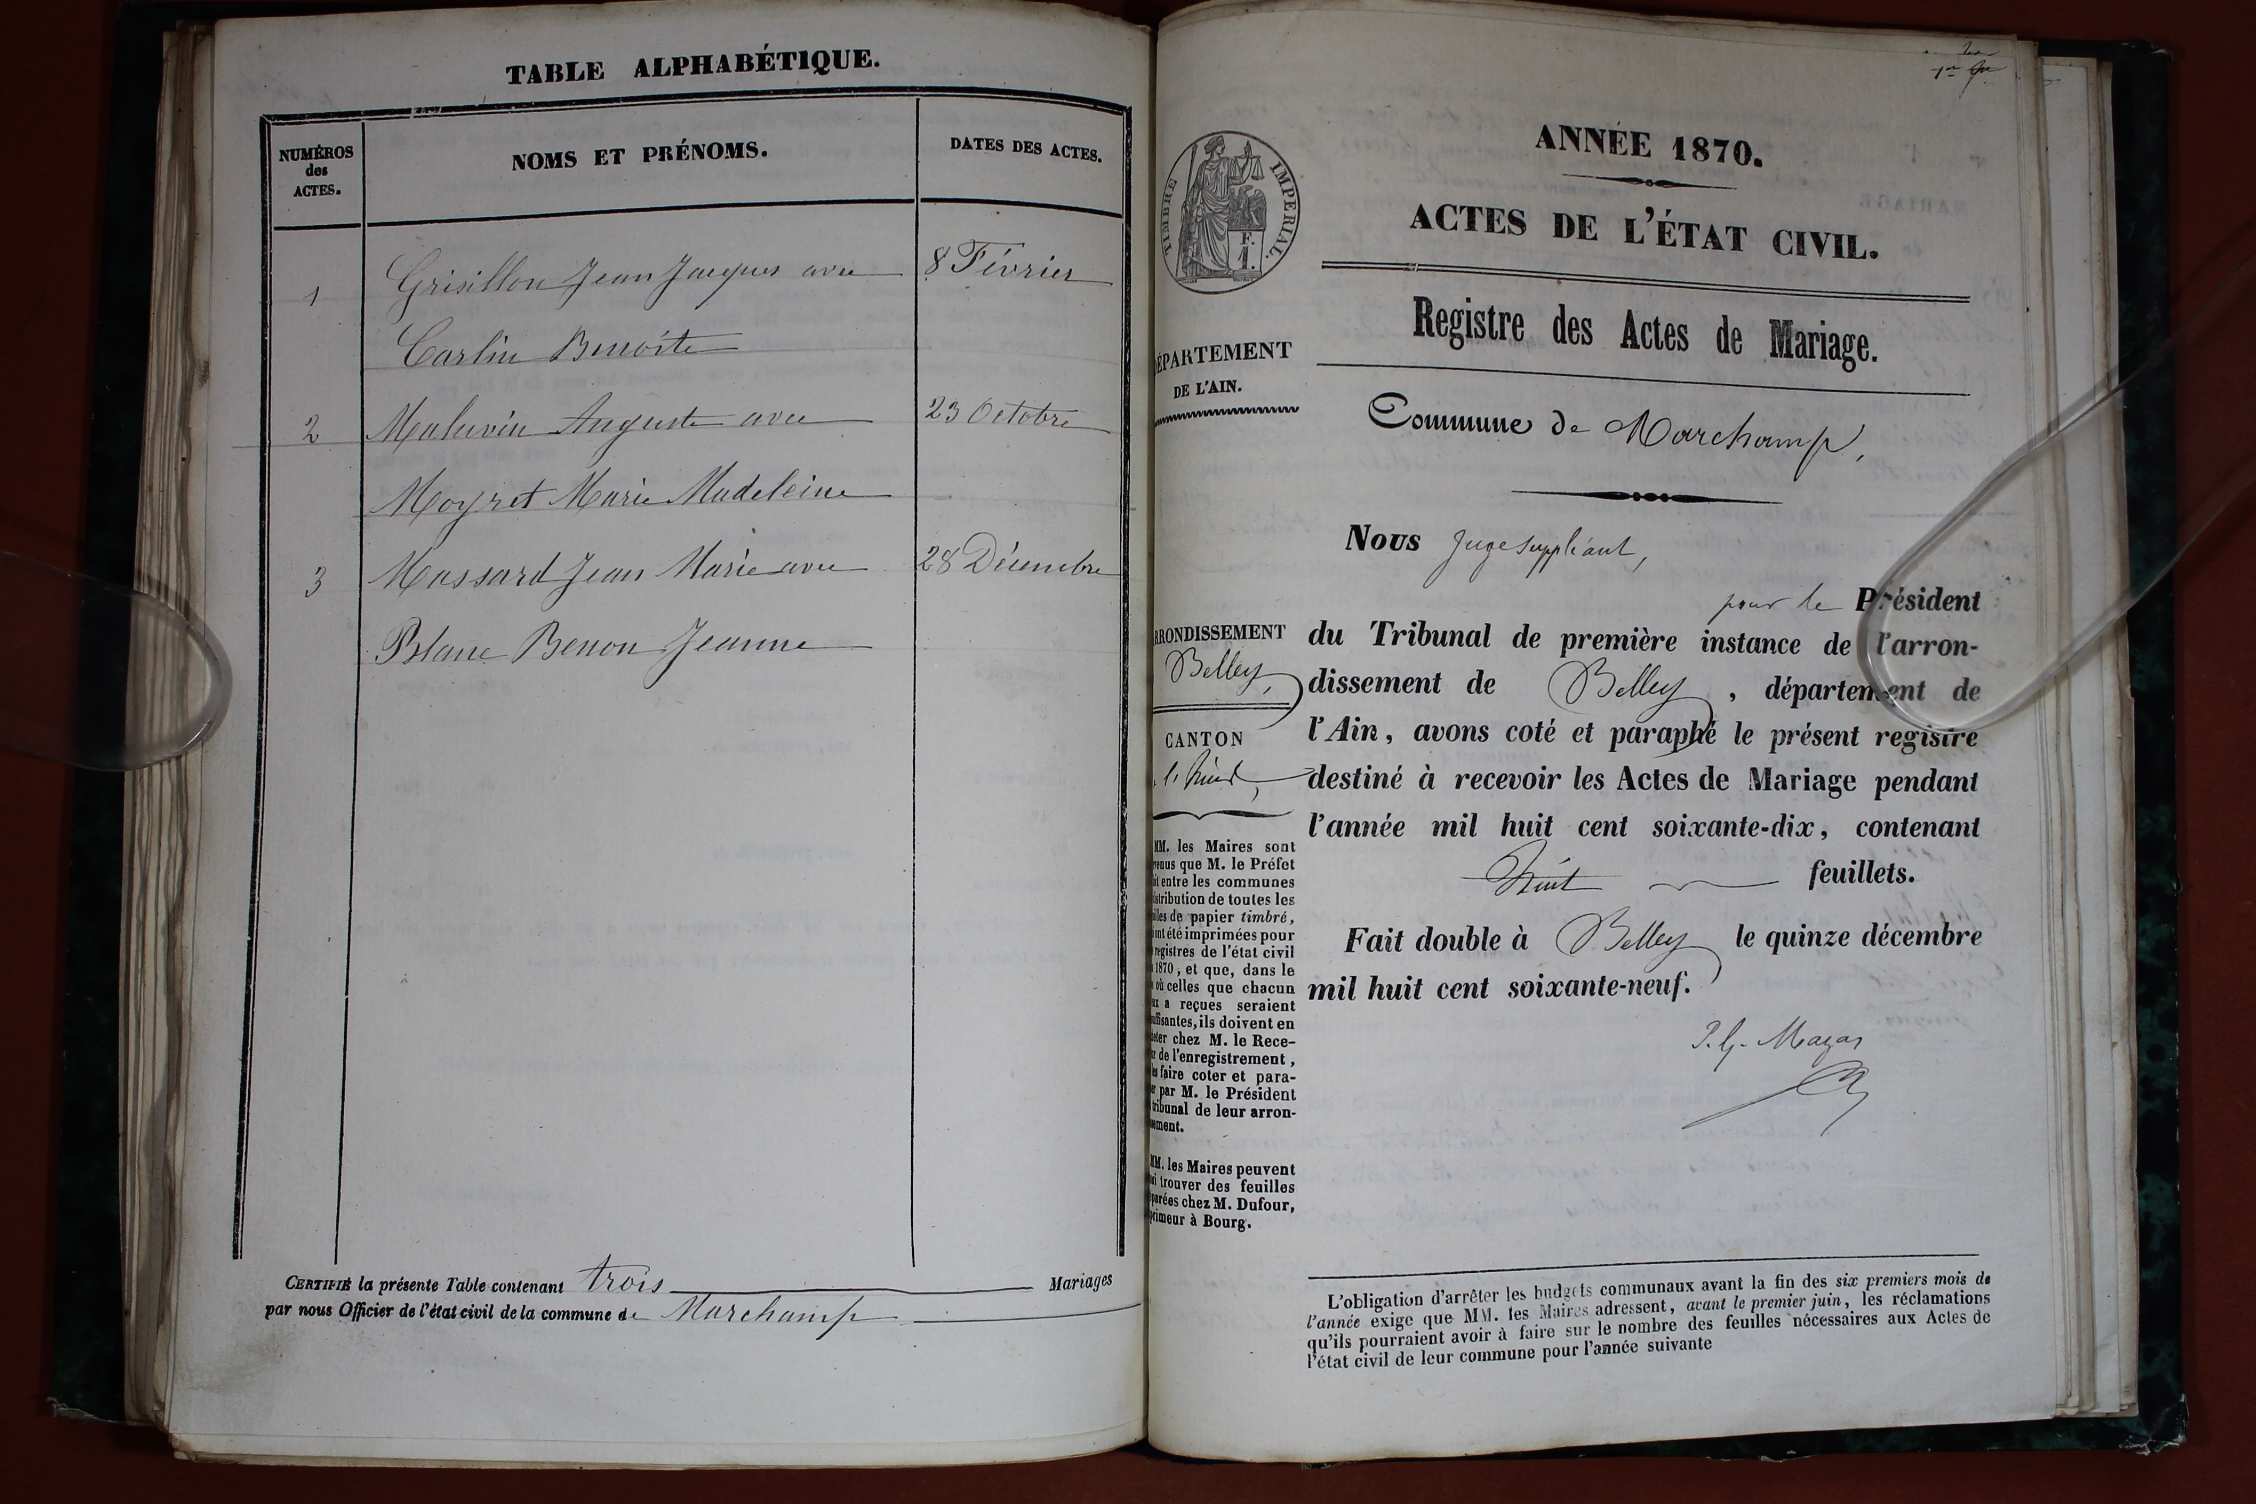 TABLE ALPHABÉTIQUE.
NUMÉROS
des
ACTES.
NOMS ET PRÉNOMS.
DATES DES ACTES.
1
Grisillon Jean Jacques avec
8 Février
Carlin Benoite
2
Maluvin Auguste avec
23 Octobre
Moyret Marie Madeleine
3
Massard Jean Marie avec
28 Décembre
Blanc Benon Jeanne
CERTIFIÉ la présente Table contenant trois Mariages
par nous Officier de l'état civil de la commune de Marchamp
TIMBRE IMPÉRIAL.
F.
1.
DÉPARTEMENT
DE L'AIN.
ARRONDISSEMENT
Belley,
CANTON
MM. les Maires sont
venus que M. le Préfet
it entre les communes
istribution de toutes les
illes de papier timbré,
ont été imprimées pour
registres de l'état civil
1870, et que, dans le
où celles que chacun
ux a reçues seraient
uffisantes, ils doivent en
eter chez M. le Rece-
r de l'enregistrement,
les faire coter et para-
er par M. le Président
tribunal de leur arron-
sement.
MM. les Maires peuvent
si trouver des feuilles
parées chez M. Dufour,
primeur à Bourg.
1er
ANNÉE 1870.
ACTES DE L'ÉTAT CIVIL.
Registre des Actes de Mariage.
Commune de Marchamp,
Nous Juge suppléant,
pour le Président
du Tribunal de première instance de l'arron-
dissement de Belley, département de
l'Ain, avons coté et paraphé le présent registre
destiné à recevoir les Actes de Mariage pendant
l'année mil huit cent soixante-dix, contenant
huit feuillets.
Fait double à Belley le quinze décembre
mil huit cent soixante-neuf.
L'obligation d'arrêter les budgets communaux avant la fin des six premiers mois de
l'année exige que MM. les Maires adressent, avant le premier juin, les réclamations
qu'ils pourraient avoir à faire sur le nombre des feuilles nécessaires aux Actes de
l'état civil de leur commune pour l'année suivante